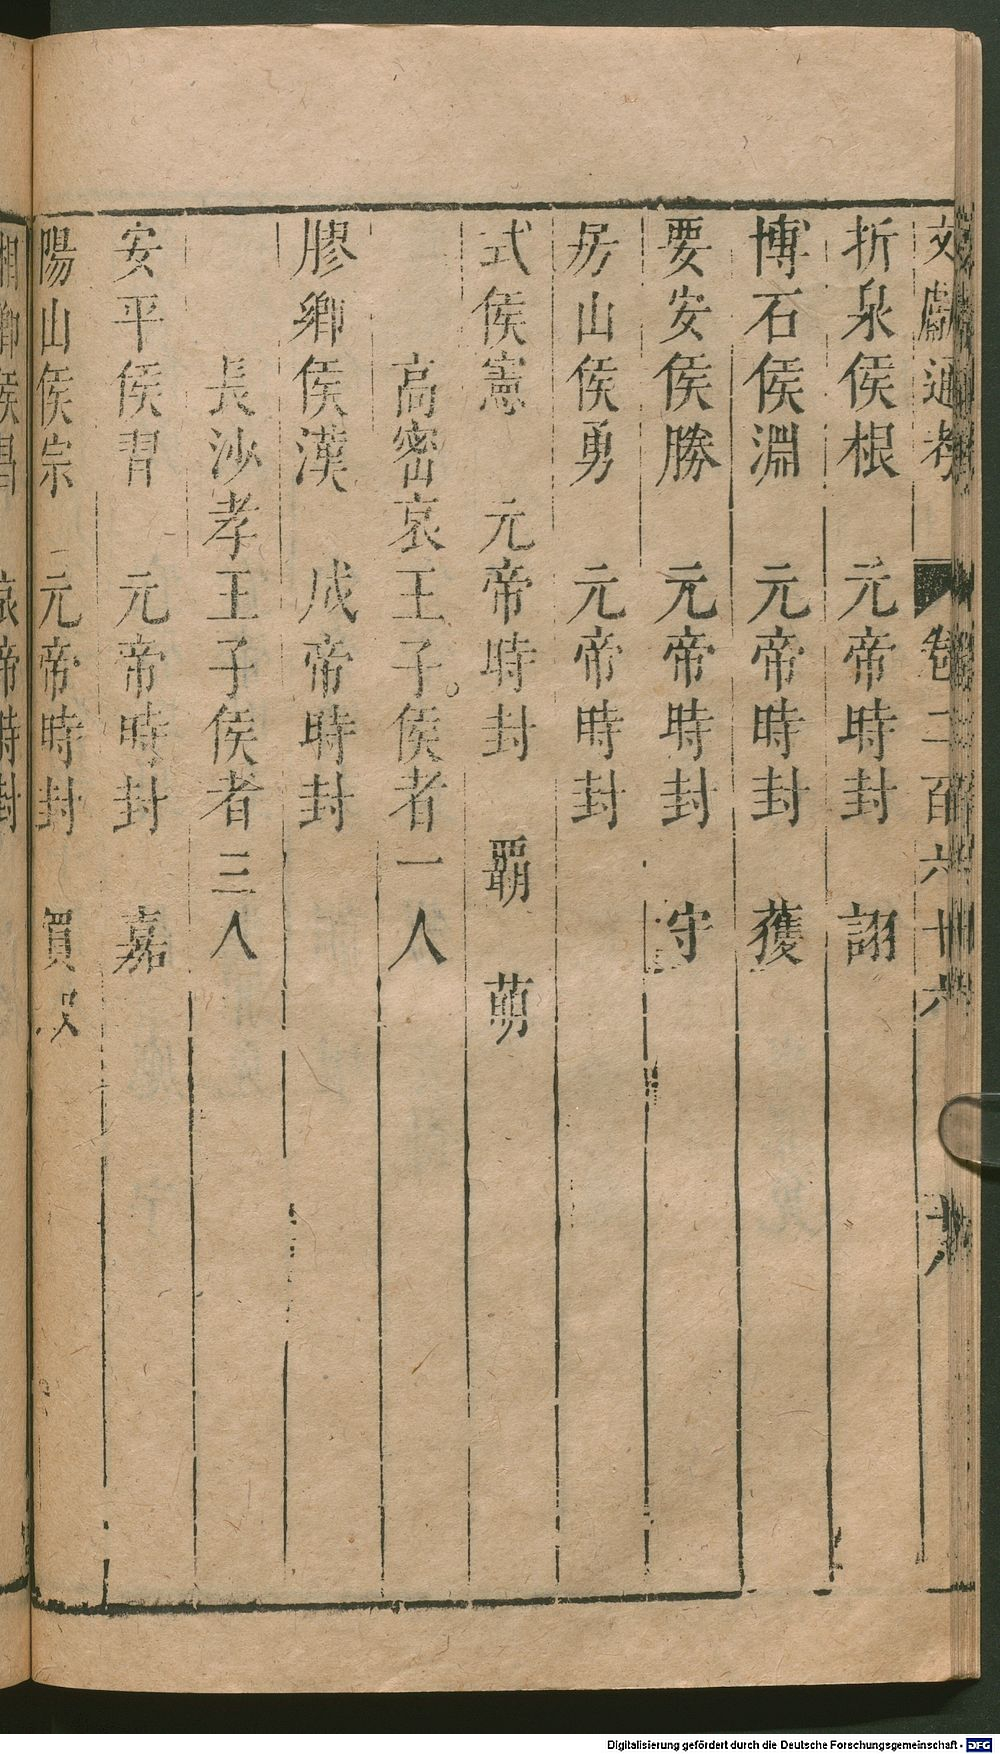 文獻通考 卷二百六十六 十八
折泉侯根 元帝時封 詡
博石侯淵 元帝時封 獲
要安侯勝 元帝時封 守
房山侯勇 元帝時封
式侯憲 元帝時封 覇 萌
高密哀王子。侯者一人
膠鄉侯漢 成帝時封
長沙孝王子侯者三人
安平侯習 元帝時封 嘉
陽山侯宗 元帝時封 買奴
湘鄉侯昌 哀帝時封
Digitalisierung gefördert durch die Deutsche Forschungsgemeinschaft - DFG